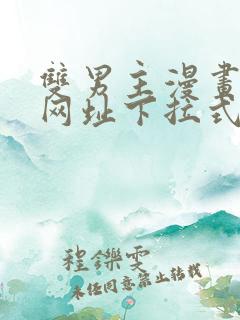 雙男主漫畫
网址下拉式
程鑠雯
未经同意禁止转载